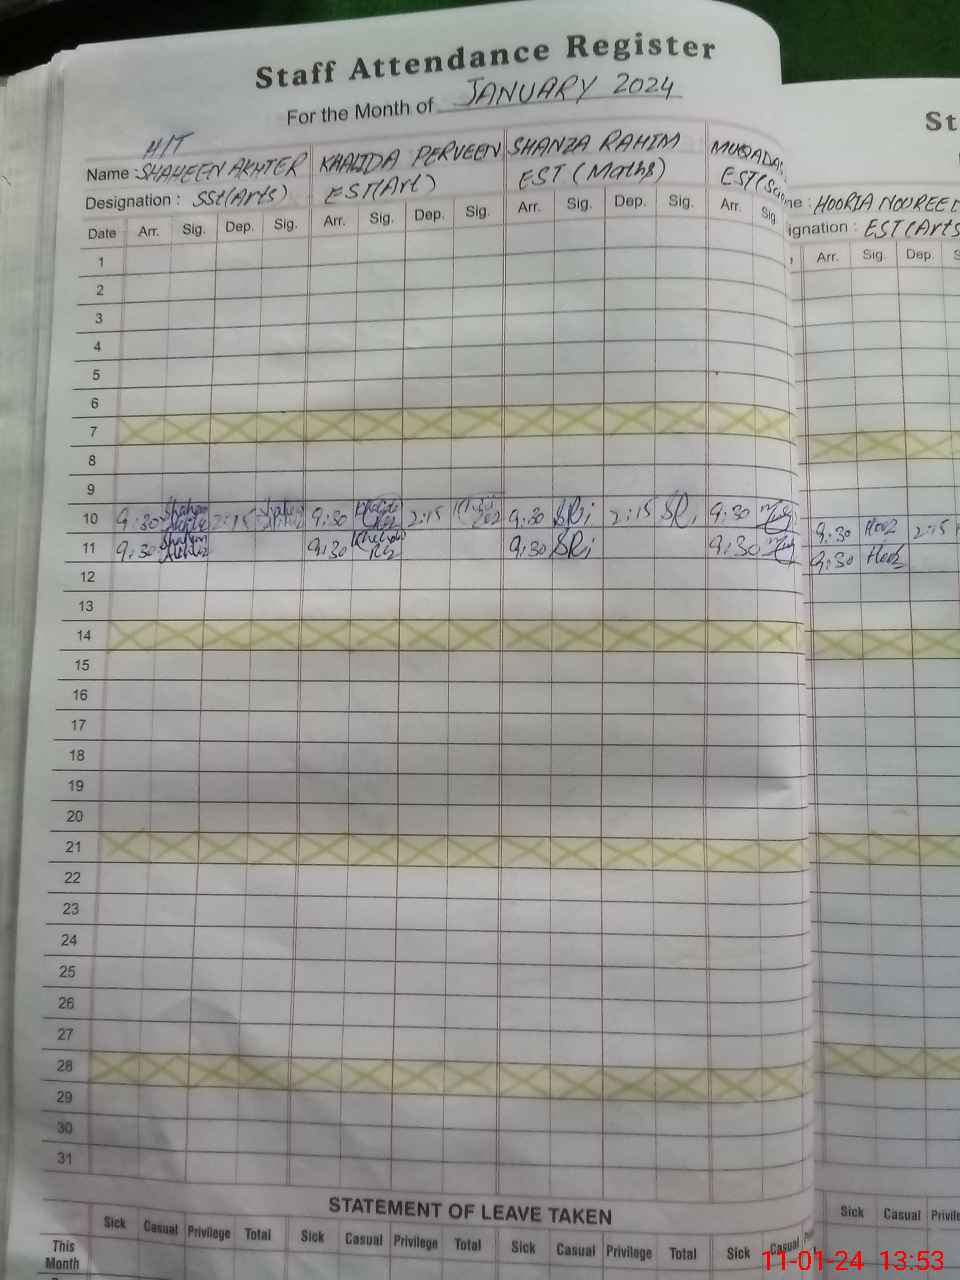 Staff Attendance Register
For the Month of JANUARY 2024
St
H/T
Name : SHAHEEN AKHTER KHALIDA PERVEEN SHANZA RAHIM
Designation : SSt(Arts) EST(Art) EST (Maths)
ne : HOORIA NOOREE
ignation : EST(Arts
Date Arr. Sig. Dep. Sig. Arr. Sig. Dep. Sig. Arr. Sig. Dep. Sig. Arr. Sig. Arr. Sig. Dep. S
1
2
3
4
5
6
7
8
9
10 9:30 Shaheen 2:15 9:30 2:15 9:30 SRi 2:15 SRi 9:30 9:30 2:15
11 9:30 Shaheen Akhter 9:30 9:30 SRi 9:30 9:30
12
13
14
15
16
17
18
19
20
21
22
23
24
25
26
27
28
29
30
31
STATEMENT OF LEAVE TAKEN
Sick Casual Privilege Total Sick Casual Privilege Total Sick Casual Privilege Total Sick Casual Sick Casual Privile
This Month
11-01-24 13:53